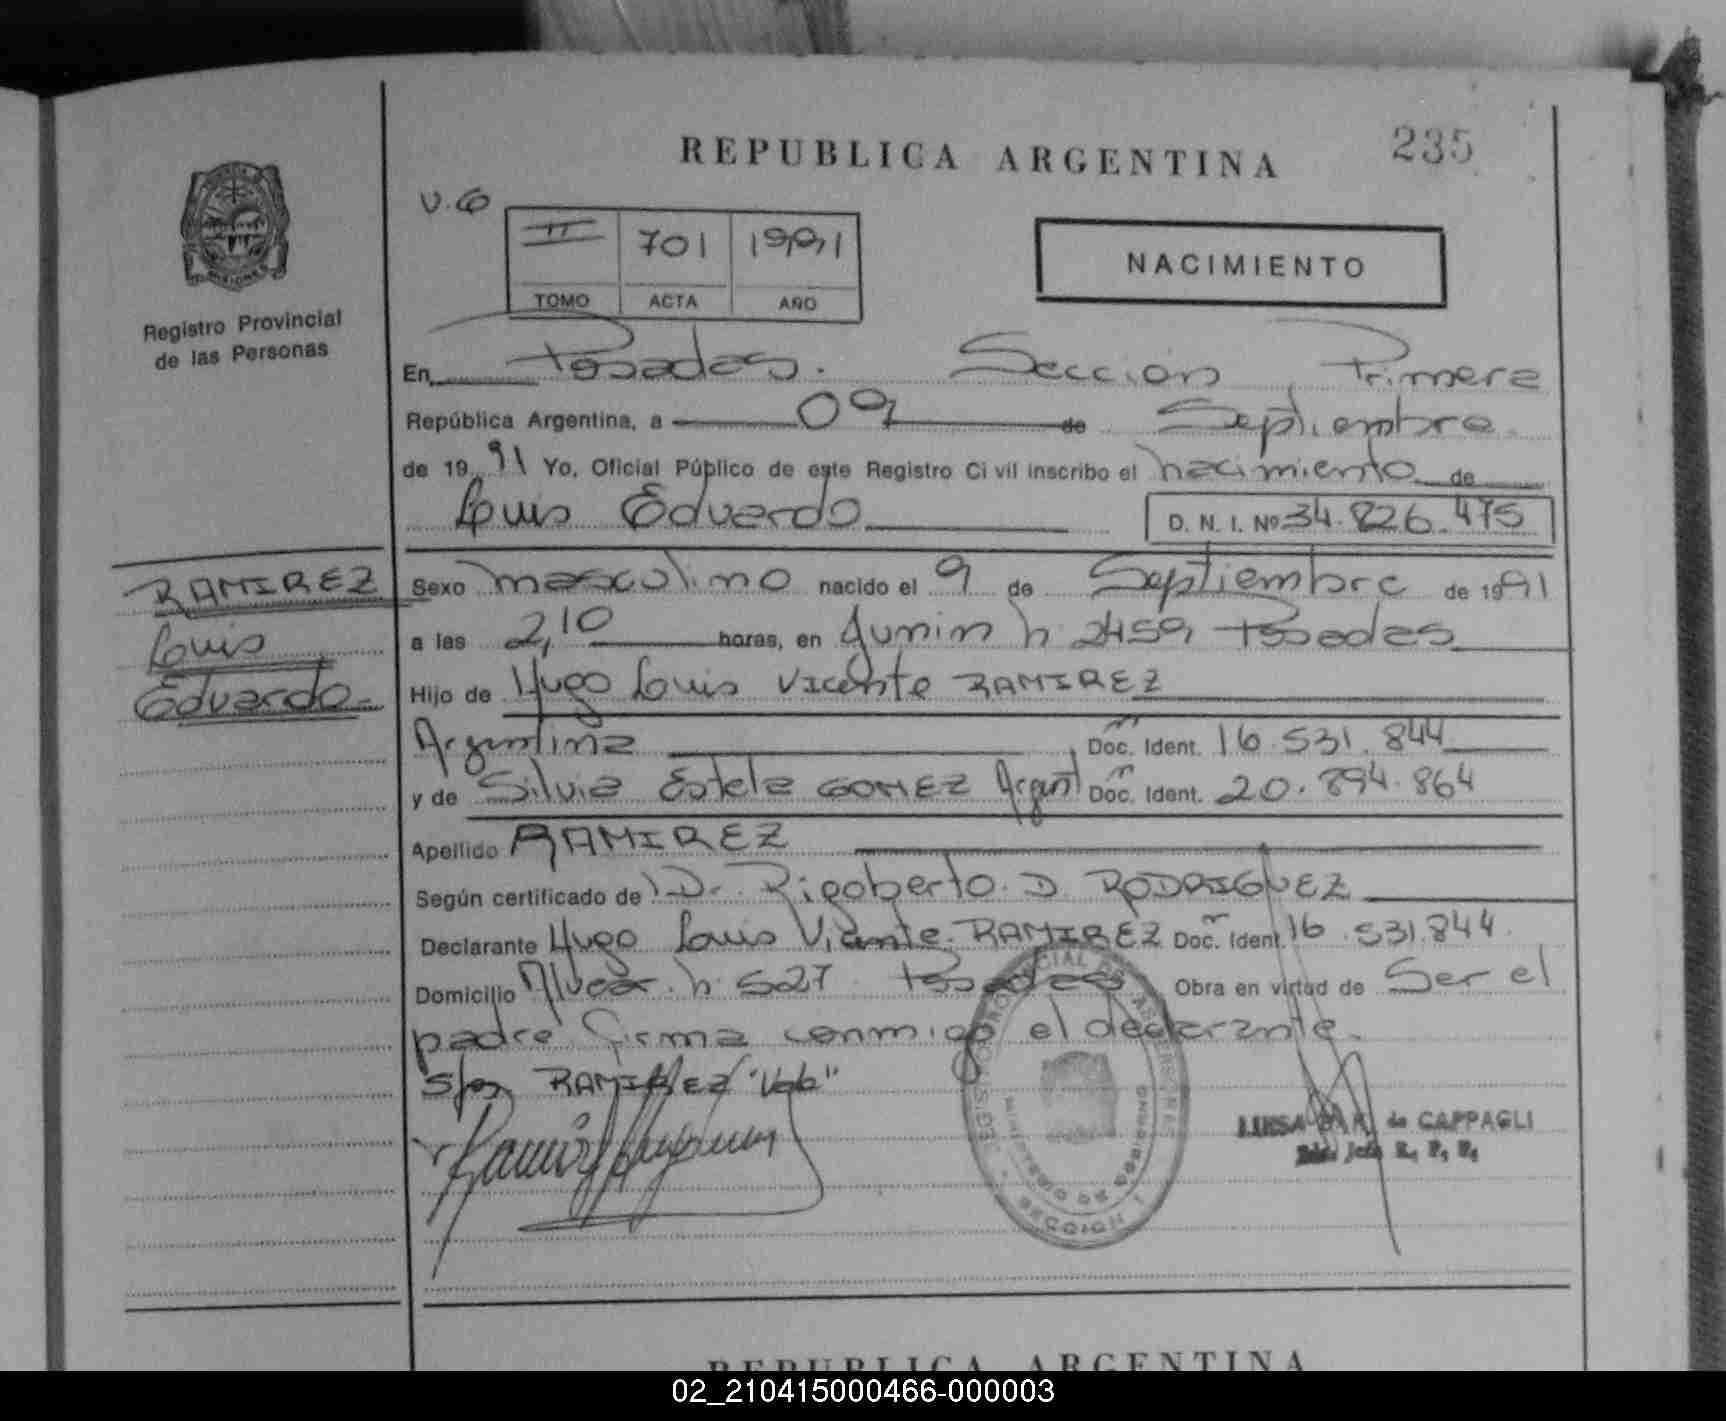 REPUBLICA ARGENTINA
235
V.6
II 701 1991
TOMO ACTA AÑO
NACIMIENTO
Registro Provincial
de las Personas
En Posadas. Sección Primera
República Argentina, a 09 de Septiembre
de 1991 Yo, Oficial Público de este Registro Civil inscribo el nacimiento de
Luis Eduardo D. N. I. Nº 34.826.475
RAMIREZ
Luis
Eduardo
Sexo masculino nacido el 9 de Septiembre de 1991
a las 2,10 horas, en Junin n 2459 Posadas
Hijo de Hugo Luis Vicente RAMIREZ
Argentina Doc. Ident. 16.531.844
y de Silvia Estela GOMEZ Argent Doc. Ident. 20.894.864
Apellido RAMIREZ
Según certificado de Dr. Rigoberto D. RODRIGUEZ
Declarante Hugo Luis Vicente RAMIREZ Doc. Ident. 16.531.844
Domicilio Alvear n 527 Posadas Obra en virtud de Ser el
padre firma conmigo el declarante.
S/r RAMIREZ "Vale"
REGISTRO PROVINCIAL DE LAS PERSONAS
SECCION 1
LUISA de CAPPAGLI
Jefe R. P. P.
REPUBLICA ARGENTINA
02_210415000466-000003